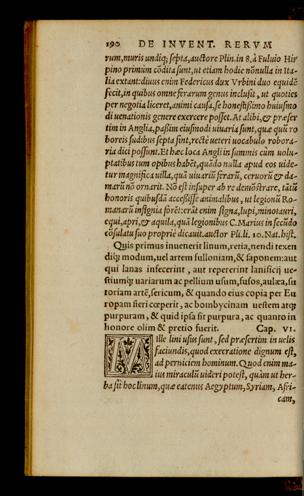 190 DE INVENT. RERVM
rum, muris undiq; septa, auctore Plin. in 8. à Fuluio Hir
pino primùm cõdita sunt, ut etiam hodie nõnulla in Ita
lia extant: diuus enim Federicus dux Vrbini duo equidẽ
fecit, in quibus omne ferarum genus inclusit, ut quoties
per negotia liceret, animi causa, se honestißimo huiusmo
di uenationis genere exercere posset. At alibi, & præser
tim in Anglia, paßim eiusmodi uiuaria sunt, quæ quù ro
boreis sudibus septa sint, rectè ueteri uocabulo robora-
ria dici possunt. Et hæc loca Angli in summis cùm uolu-
ptatibus tum opibus habẽt, quãdo nulla apud eos uide-
tur magnifica uilla, quã uiuariũ ferarũ, ceruorũ & da-
marũ nõ ornarit. Nõ est insuper ab re demõstrare, tãtũ
honoris quibusdã accessisse animalibus, ut legionũ Ro-
manarũ insignia forẽt: erãt enim signa, lupi, minotauri,
equi, apri, & aquila, quã legionibus C. Marius in secũdo
cõsulatu suo propriè dicauit. auctor Pli. li. 10. Nat. hist.
Quis primus inuenerit linum, retia, nendi texen
dịq; modum, uel artem fulloniam, & saponem: aut
qui lanas infecerint, aut repererint lanificij ue-
stiumq; uariarum ac pellium usum, fusos, aulæa, sú-
toriam artẽ, sericum, & quando eius copia per Eu
ropam fieri cœperit, ac bombycinam uestem atq;
purpuram, & quid ipsa sit purpura, ac quanto in
honore olim & pretio fuerit. Cap. VI.
MIlle lini usus sunt, sed præsertim in uelis
faciundis, quod execratione dignum est,
ad perniciem hominum. Quod enim ma-
ius miraculũ uideri potest, quàm ut her-
ba sit hoc linum, quæ eatenus Aegyptum, Syriam, Afri-
cam,